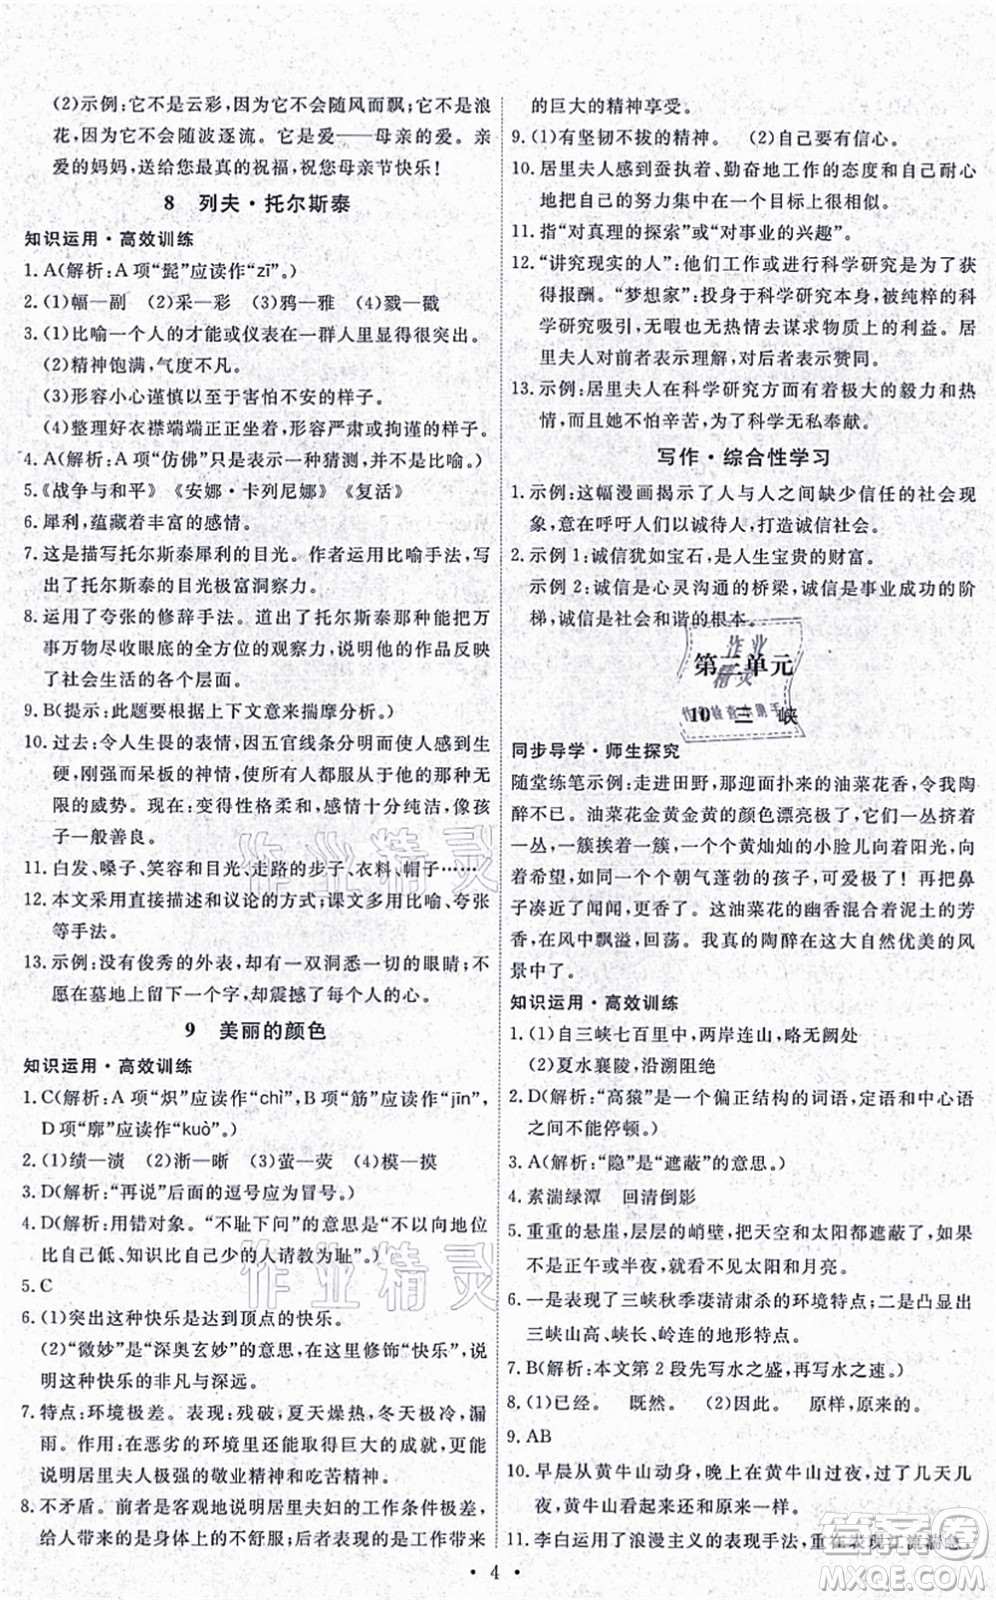 (2)示例:它不是云彩,因为它不会随风而飘;它不是浪
花,因为它不会随波逐流。它是爱——母亲的爱。亲
爱的妈妈,送给您最真的祝福,祝您母亲节快乐!
8 列夫·托尔斯泰
知识运用·高效训练
1. A(解析:A项“髭”应读作“zī”。)
2. (1)幅—副 (2)采—彩 (3)鸦—雅 (4)戮—戳
3. (1)比喻一个人的才能或仪表在一群人里显得很突出。
(2)精神饱满,气度不凡。
(3)形容小心谨慎以至于害怕不安的样子。
(4)整理好衣襟端端正正坐着,形容严肃或拘谨的样子。
4. A(解析:A项“仿佛”只是表示一种猜测,并不是比喻。)
5.《战争与和平》《安娜·卡列尼娜》《复活》
6. 犀利,蕴藏着丰富的感情。
7. 这是描写托尔斯泰犀利的目光。作者运用比喻手法,写
出了托尔斯泰的目光极富洞察力。
8. 运用了夸张的修辞手法。道出了托尔斯泰那种能把万
事万物尽收眼底的全方位的观察力,说明他的作品反映
了社会生活的各个层面。
9. B(提示:此题要根据上下文意来揣摩作答。)
10. 过去:令人生畏的表情,因五官线条分明而显得生
硬,刚强而呆板的神情,使所有人都服从于他的一种无
限的威势。现在:变得性格柔和,感情十分纯洁,像孩
子一般善良。
11. 白发、嗓子、笑容和目光、走路的步子、衣料、帽子……
12. 本文采用直接描述和议论的方式;课文多用比喻、夸张
等手法。
13. 示例:没有俊秀的外表,却有一双洞悉一切的眼睛;不
愿在墓地上留下一个字,却震撼了每个人的心。
9 美丽的颜色
知识运用·高效训练
1. C(解析:A项“炽”应读作“chì”,B项“筋”应读作“jīn”,
D项“廓”应读作“kuò”。)
2. (1)绩—渍 (2)淅—晰 (3)萤—荧 (4)模—摸
3. D(解析:“再说”后面的逗号应为冒号。)
4. D(解析:用错对象。“不耻下问”的意思是“不以向地位
比自己低、知识比自己少的人请教为耻”。)
5. C
6. (1)突出这种快乐是达到顶点的快乐。
(2)“微妙”是“深奥玄妙”的意思,在这里修饰“快乐”,使
这种快乐的非凡与深远。
7. 特点:环境极差。表现:残破,夏天燥热,冬天寒冷,漏
雨。作用:在恶劣的环境里能做出如此大的成就,更能
说明居里夫人极强的敬业精神和吃苦精神。
8. 不矛盾。前者是客观地说明居里夫妇的工作条件极差,
给人带来的是身体上的不舒服;后者表现的是工作带来
的巨大的精神享受。
9. (1)有坚韧不拔的精神。 (2)自己要有信心。
10. 居里夫人感到蚕执着、勤奋地工作的态度和自己耐心
地把自己的努力集中在一个目标上很相似。
11. 指“对真理的探索”或“对事业的兴趣”。
12. “讲究现实的人”:他们工作或进行科学研究是为了获
得报酬。“梦想家”:投身于科学研究本身,被纯粹的科
学研究吸引,无暇也无热情去谋求物质上的利益。居
里夫人对前者表示理解,对后者表示赞同。
13. 示例:居里夫人在科学研究方面有着极大的毅力和热
情,而且她不怕辛苦,为了科学无私奉献。
写作·综合性学习
1. 示例:这幅漫画揭示了人与人之间缺少信任的社会现
象,意在呼吁人们以诚待人,打造诚信社会。
2. 示例1:诚信犹如宝石,是人生宝贵的财富。
示例2:诚信是心灵沟通的桥梁,诚信是事业成功的阶
梯,诚信是社会和谐的根本。
第三单元
10 三 峡
同步导学·师生探究
随堂练笔示例:走进田野,那迎面扑来的油菜花香,令我陶
醉不已。油菜花金黄金黄的颜色漂亮极了,一丛挤着一
丛,一簇挨着一簇,一个个黄灿灿的小脸儿向着阳光,向
着希望,好似一个个朝气蓬勃的孩子,可爱极了!再把鼻
子凑近了闻闻,这油菜花的幽香混合着泥土的芳
香,在风中飘溢,回荡。我真的陶醉在这大自然优美的风
景中了。
知识运用·高效训练
1. (1)自三峡七百里中,两岸连山,略无阙处
(2)夏水襄陵,沿溯阻绝
2. D(解析:“高猿”是一个偏正结构的词语,定语和中心语
之间不能停顿。)
3. A(解析:“隐”是“遮蔽”的意思。)
4. 素湍绿潭 回清倒影
5. 重重的悬崖,层层的峭壁,把天空和太阳都遮蔽了,如果
不是正午或半夜,就不能看见太阳和月亮。
6. 一是表现了三峡秋季凄清肃杀的环境特点;二是凸显出
三峡山高、峡长、岭连的地形特点。
7. B(解析:本文第2段先写水之盛,再写水之速。)
8. (1)已经。 既然。 (2)因此。 原样,原来的样子。
9. AB
10. 早晨从黄牛山动身,晚上在黄牛山过夜,过了几天几
夜,黄牛山看起来还是和原来一样。
11. 李白运用了浪漫主义的表现手法,重在表现江流湍急,
· 4 ·
作业精灵
作业精灵
作业
精灵
作业检查小助手
答案圈
MXQE.COM